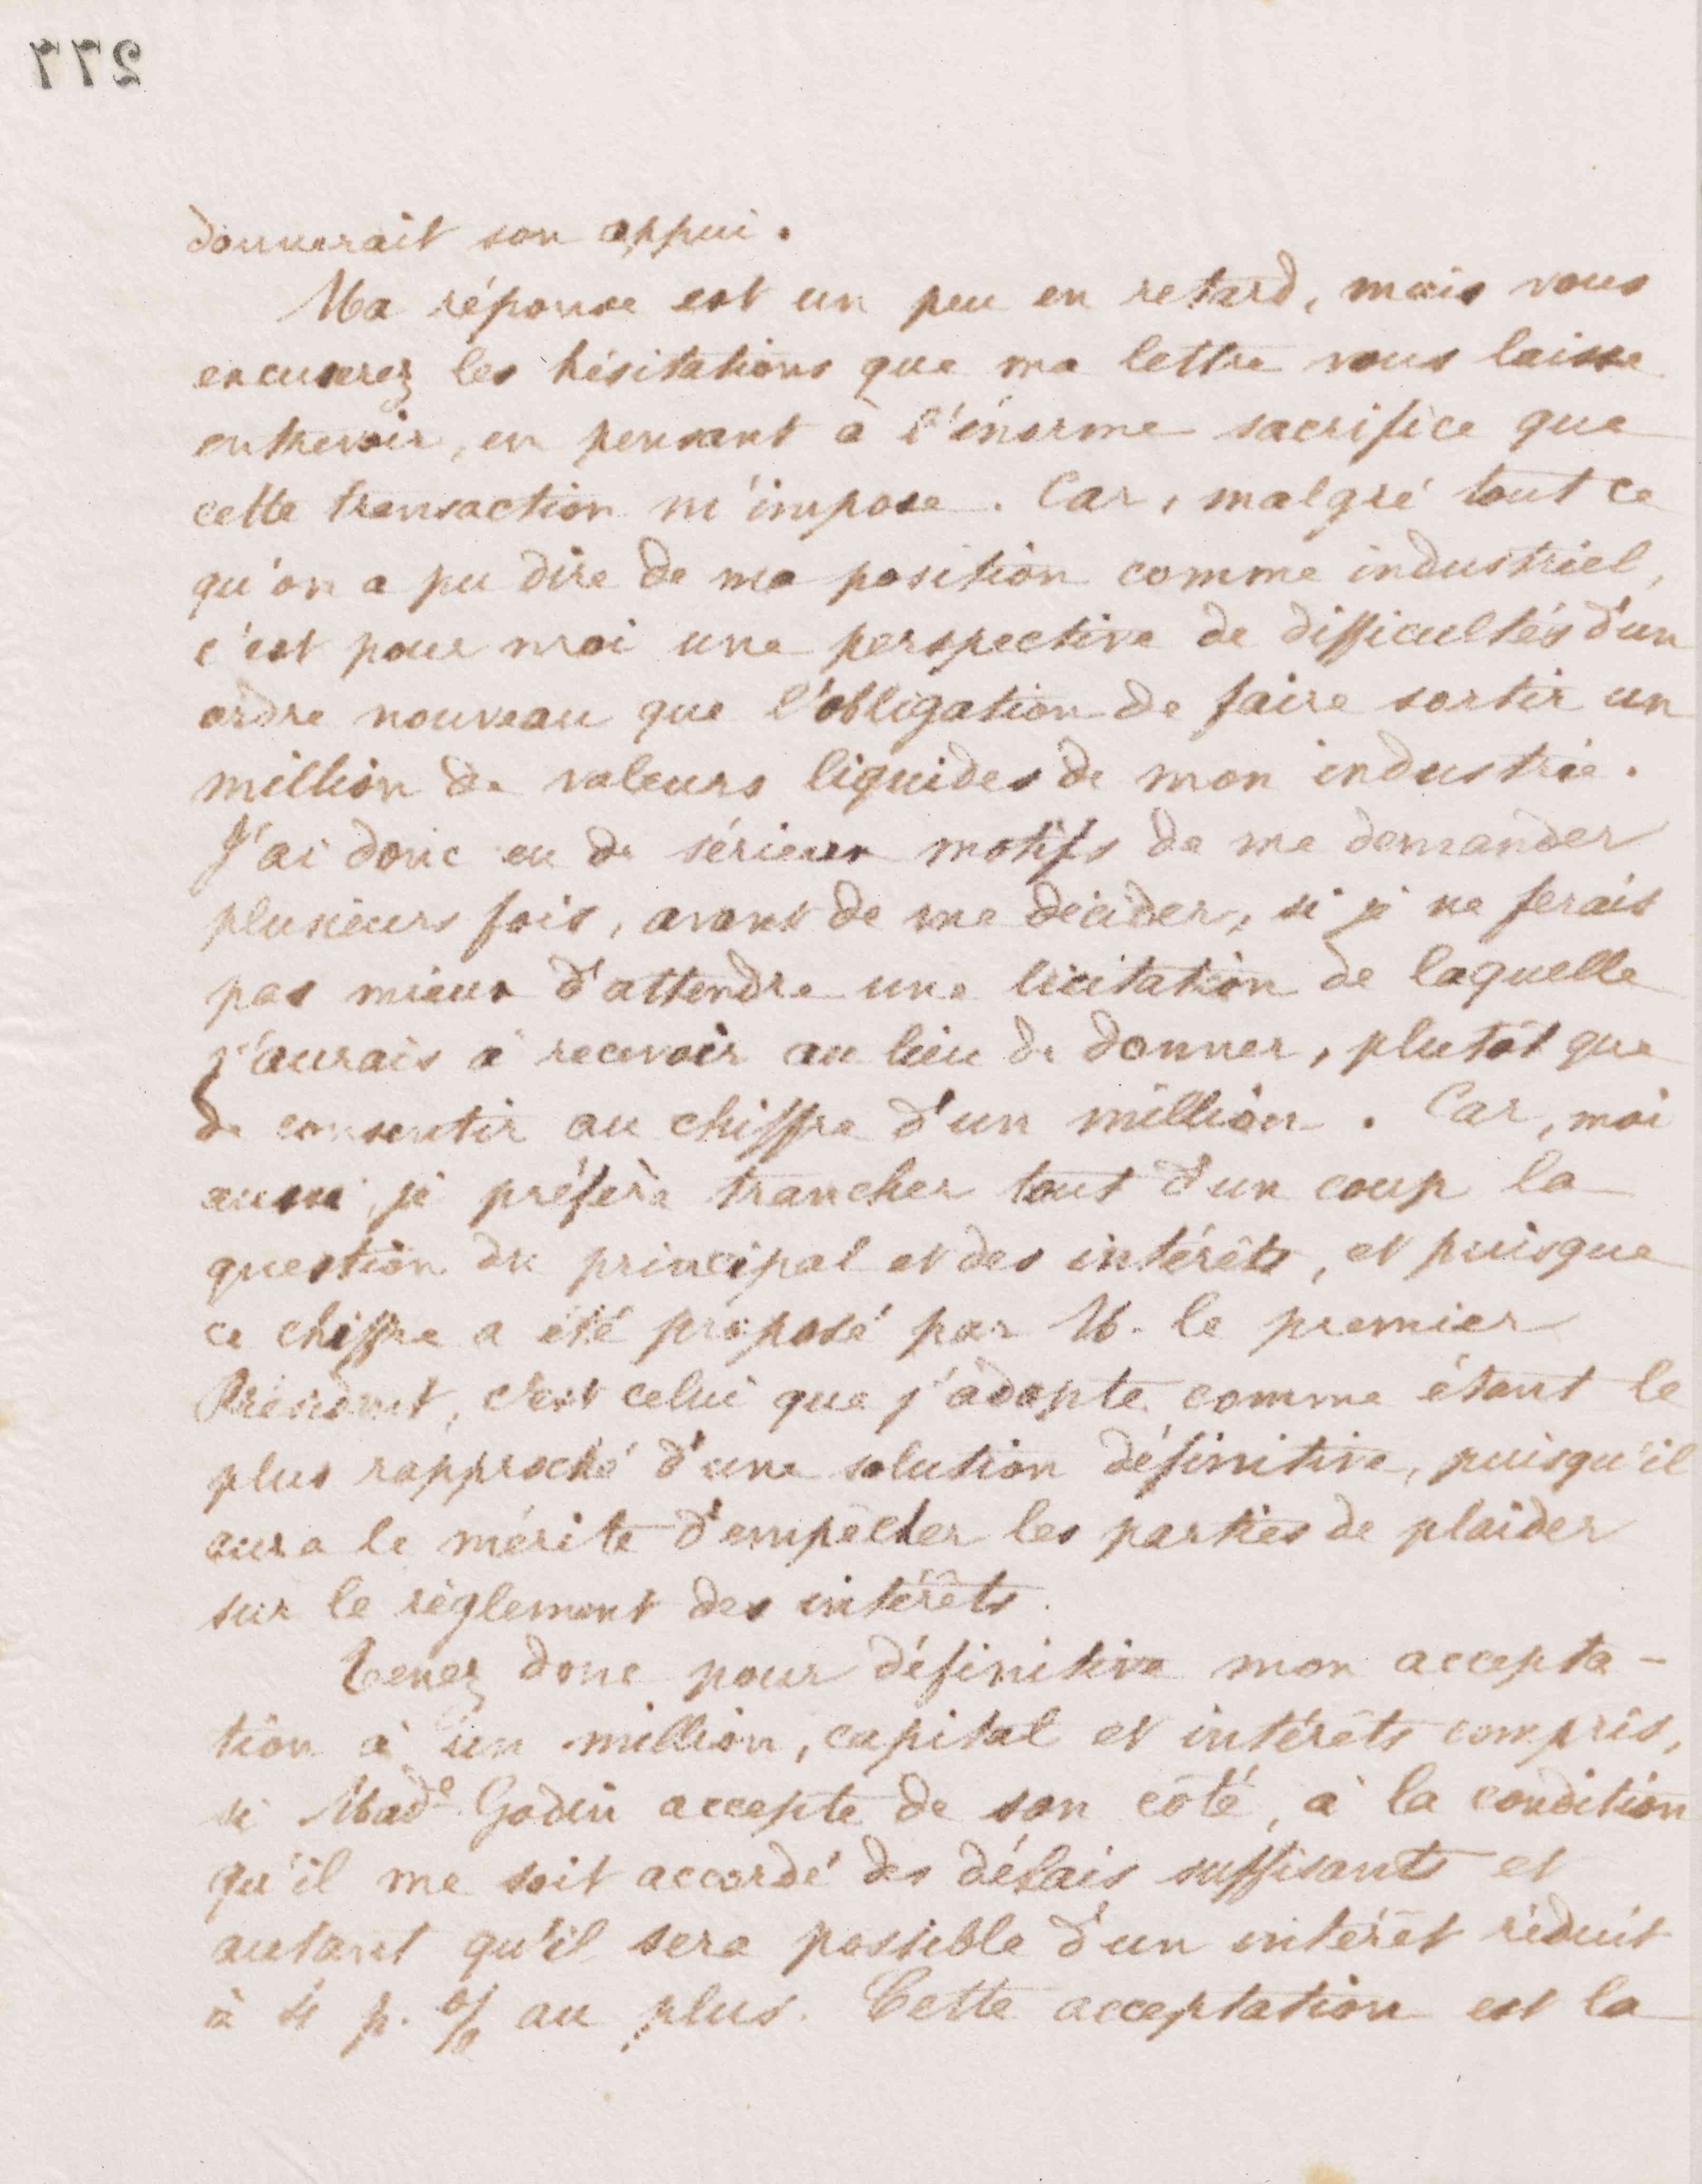 277
donnerait son appui.
Ma réponse est un peu en retard, mais vous
excuserez les hésitations que ma lettre vous laisse
entrevoir, en pensant à l'énorme sacrifice que
cette transaction m'impose. Car, malgré tout ce
qu'on a pu dire de ma position comme industriel,
c'est pour moi une perspective de difficultés d'un
ordre nouveau que l'obligation de faire sortir un
million de valeurs liquides de mon industrie.
J'ai donc eu de sérieux motifs de me demander
plusieurs fois, avant de me décider, si je ne ferais
pas mieux d'attendre une licitation de laquelle
j'aurais à recevoir au lieu de donner, plutôt que
de consentir au chiffre d'un million. Car, moi
aussi, je préfère trancher tout d'un coup la
question du principal et des intérêts, et puisque
ce chiffre a été proposé par M. le premier
Président, c'est celui que j'adopte comme étant le
plus rapproché d'une solution définitive, puisqu'il
aura le mérite d'empêcher les parties de plaider
sur le règlement des intérêts.
Tenez donc pour définitive mon accepta-
tion à un million, capital et intérêts compris,
si Made Godin accepte de son côté, à la condition
qu'il me soit accordé des délais suffisants et
autant qu'il sera possible d'un intérêt réduit
à 4 p. % au plus. Cette acceptation est la